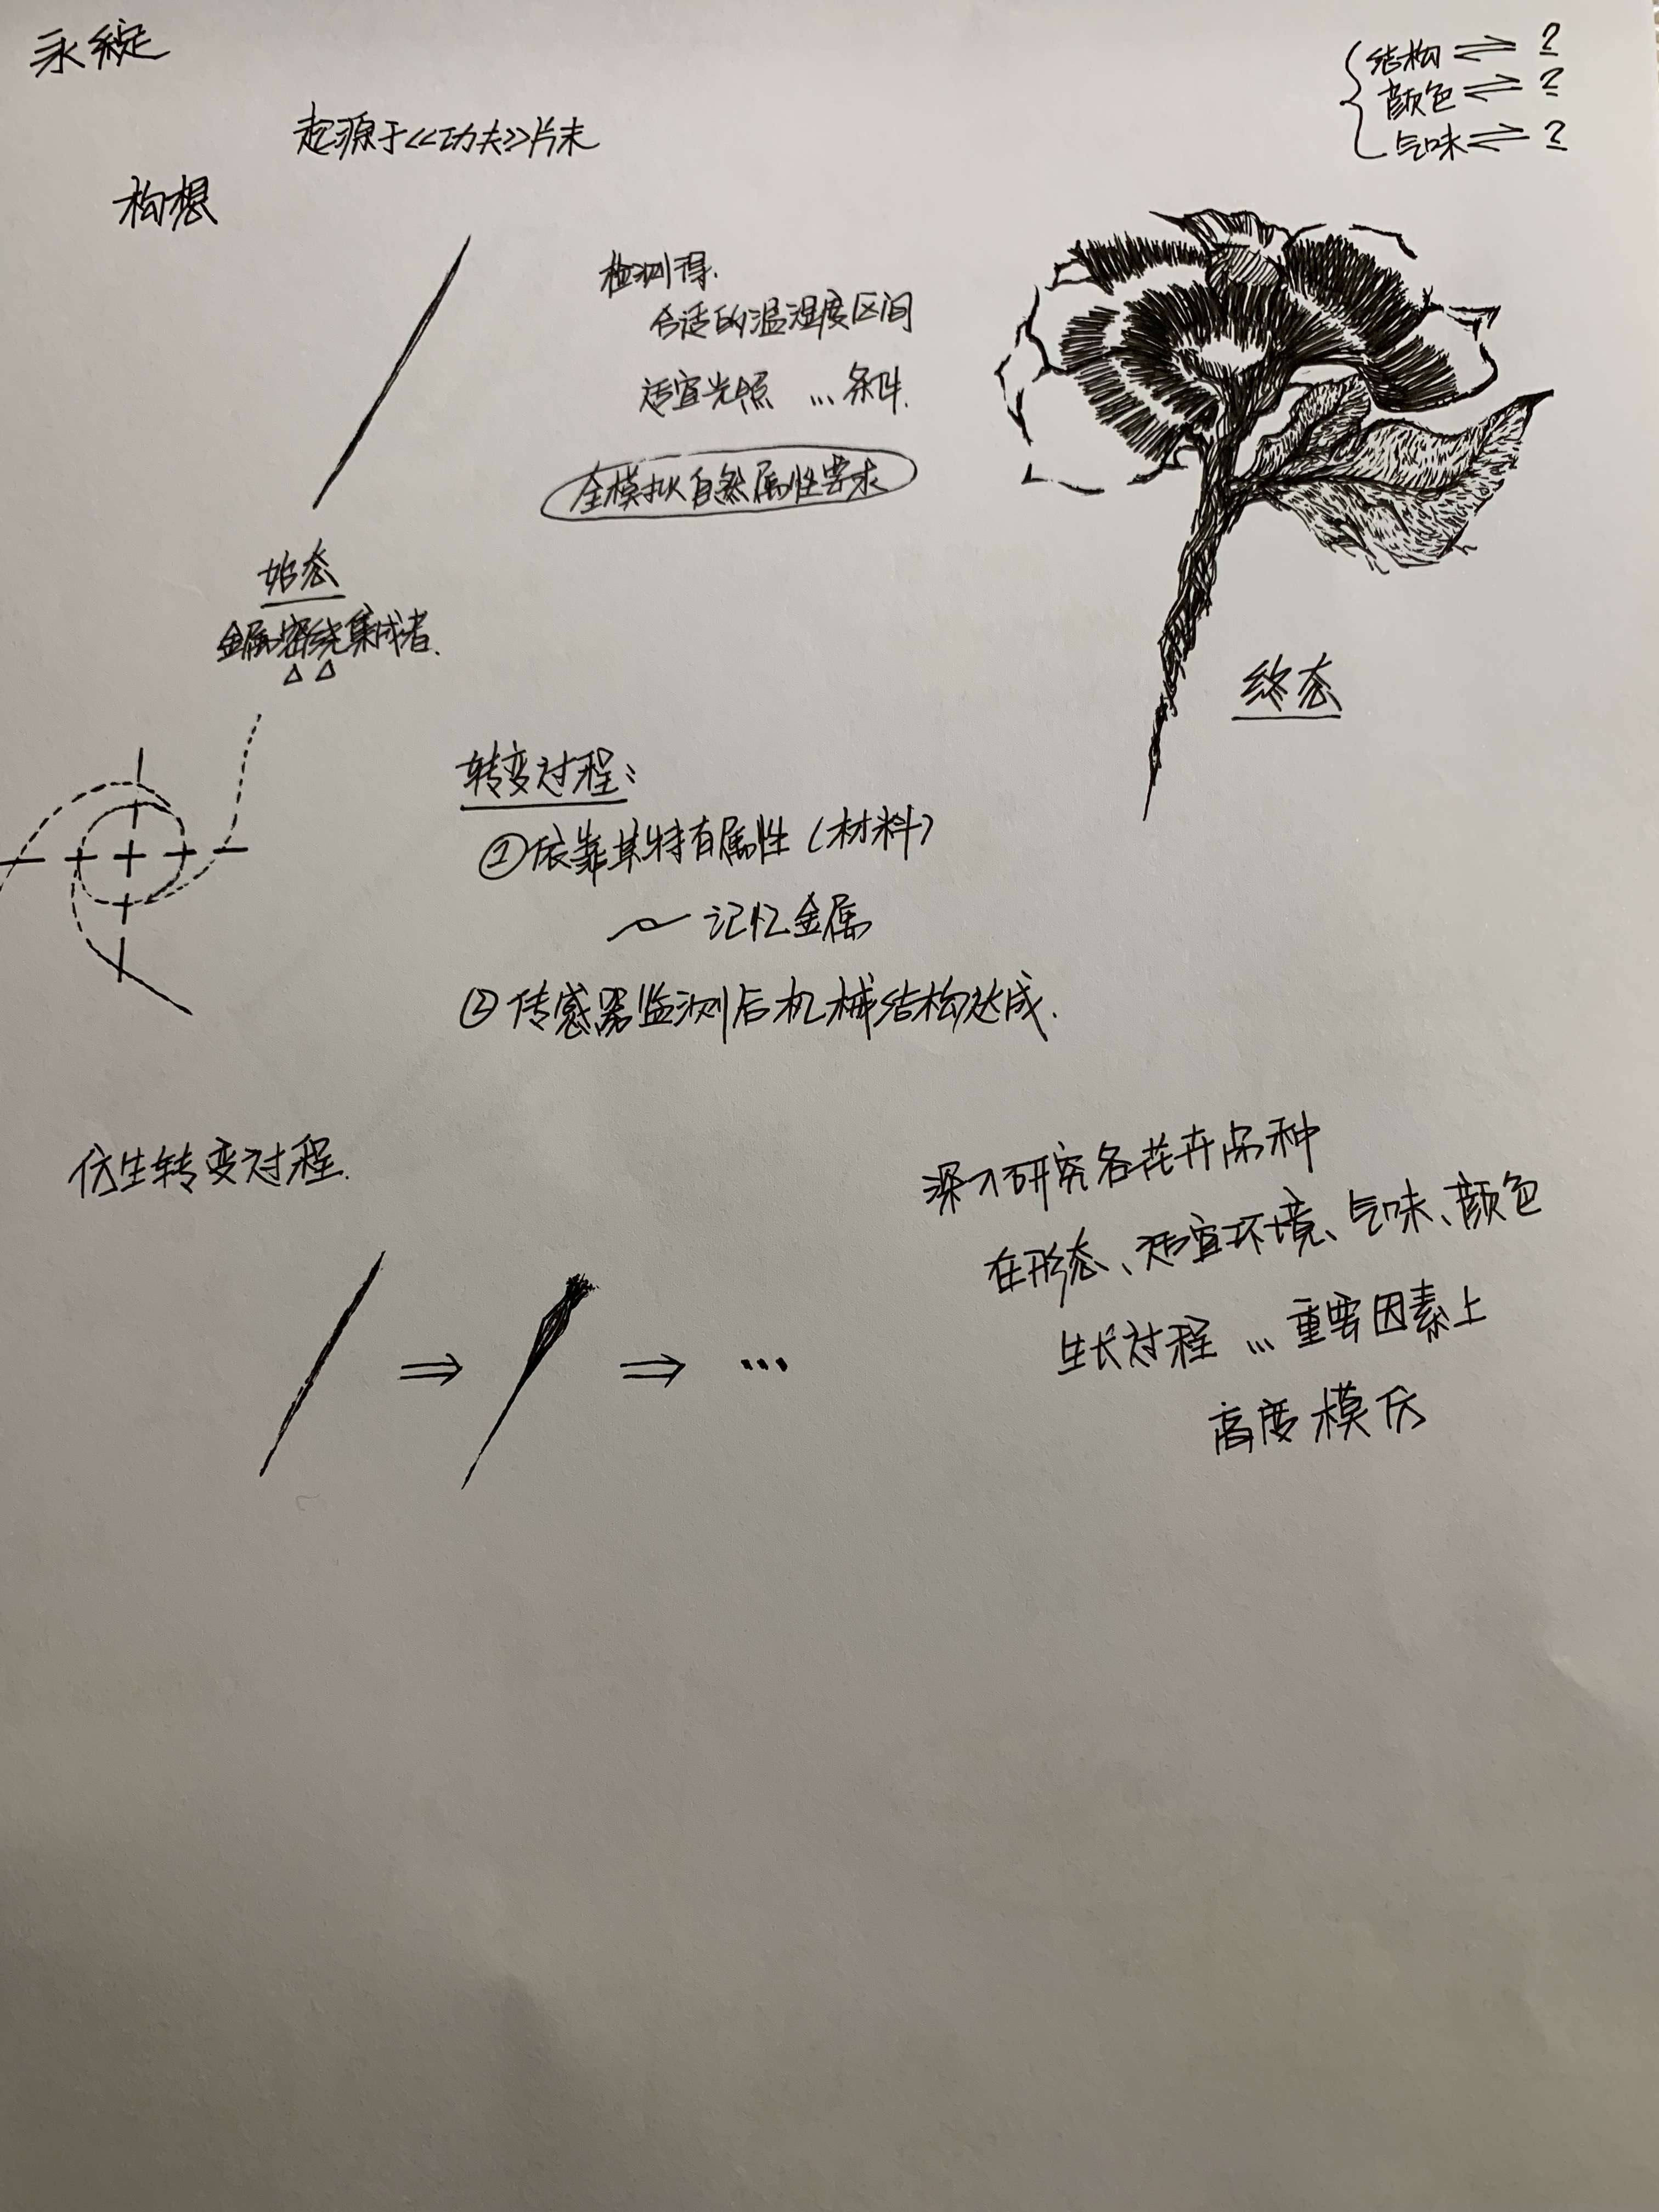 永绽
起源于《功夫》片末
构想
结构 ⇌ ?
颜色 ⇌ ?
气味 ⇌ ?
检测得.
合适的温湿度区间
适宜光照 ... 条件.
全模拟自然属性要求
始态
金属密绕集成者.
终态
转变过程:
①依靠其特有属性(材料)
记忆金属
②传感器监测后机械结构达成.
仿生转变过程.
⇒ ⇒ ...
深入研究各花卉品种
在形态、适宜环境、气味、颜色
生长过程 ... 重要因素上
高度模仿